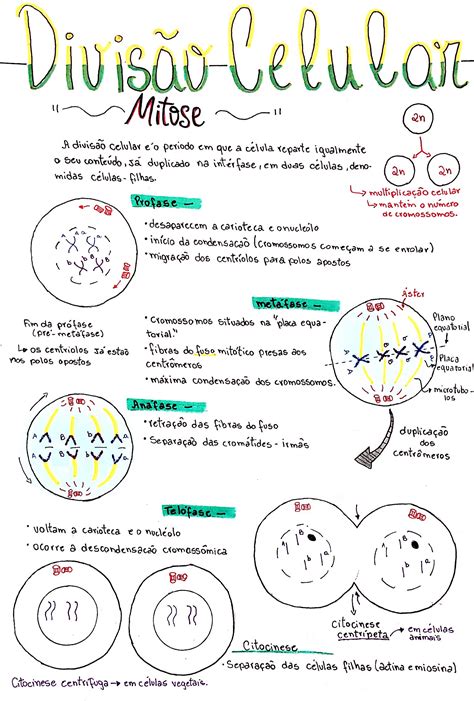 Divisão Celular
Mitose
A divisão celular é o período em que a célula reparte igualmente
o seu conteúdo, já duplicado na intérfase, em duas células, deno-
midas células-filhas.
2n
2n 2n
↳ multiplicação celular
↳ mantém o número
de cromossomos.
Prófase -
• desaparecem a carioteca e o nucléolo
• início da condensação (cromossomos começam a se enrolar)
• migração dos centríolos para polos opostos
Fim da prófase
(pré-metáfase)
↳ os centríolos já estão
nos polos opostos
metáfase -
• Cromossomos situados na "placa equa-
torial."
• fibras do fuso mitótico presas aos
centrômeros
• máxima condensação dos cromossomos.
áster
Plano
equatorial
Placa
equatorial
A b B a
microtúbu-
los
duplicação
dos
centrômeros
Anáfase -
• retração das fibras do fuso
• Separação das cromátides-irmãs
A b B a
A b B a
Telófase -
• voltam a carioteca e o nucléolo
• ocorre a descondensação cromossômica
Citocinese
centrípeta → em células
animais
Citocinese
• Separação das células filhas (actina e miosina)
Citocinese centrífuga → em células vegetais.